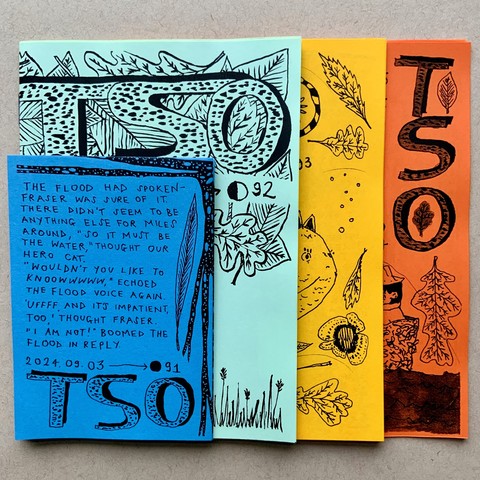 TSO
92
93
TSO
THE FLOOD HAD SPOKEN–
FRASER WAS SURE OF IT.
THERE DIDN'T SEEM TO BE
ANYTHING ELSE FOR MILES
AROUND, "SO IT MUST BE
THE WATER," THOUGHT OUR
HERO CAT.
"WOULDN'T YOU LIKE TO
KNOOWWWWW," ECHOED
THE FLOOD VOICE AGAIN.
'UFFFF, AND ITS IMPATIENT,
TOO,' THOUGHT FRASER.
"I AM NOT!" BOOMED THE
FLOOD IN REPLY.
2024.09.03 → 91
TSO